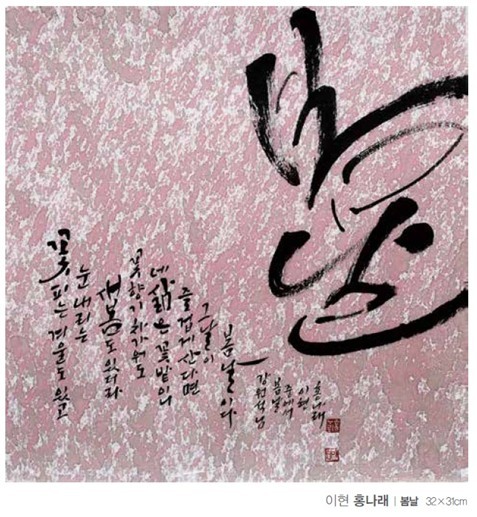 봄날
꽃 피는 겨울도 있고
눈 내리는
새봄도 있더라
꽃향기 차가워도
네 삶은 꽃밭이니
즐겁게 산다면
그날이
봄날이다
강원석님
봄날
중에서
이현
홍나래
이현 홍나래 | 봄날 32×31cm